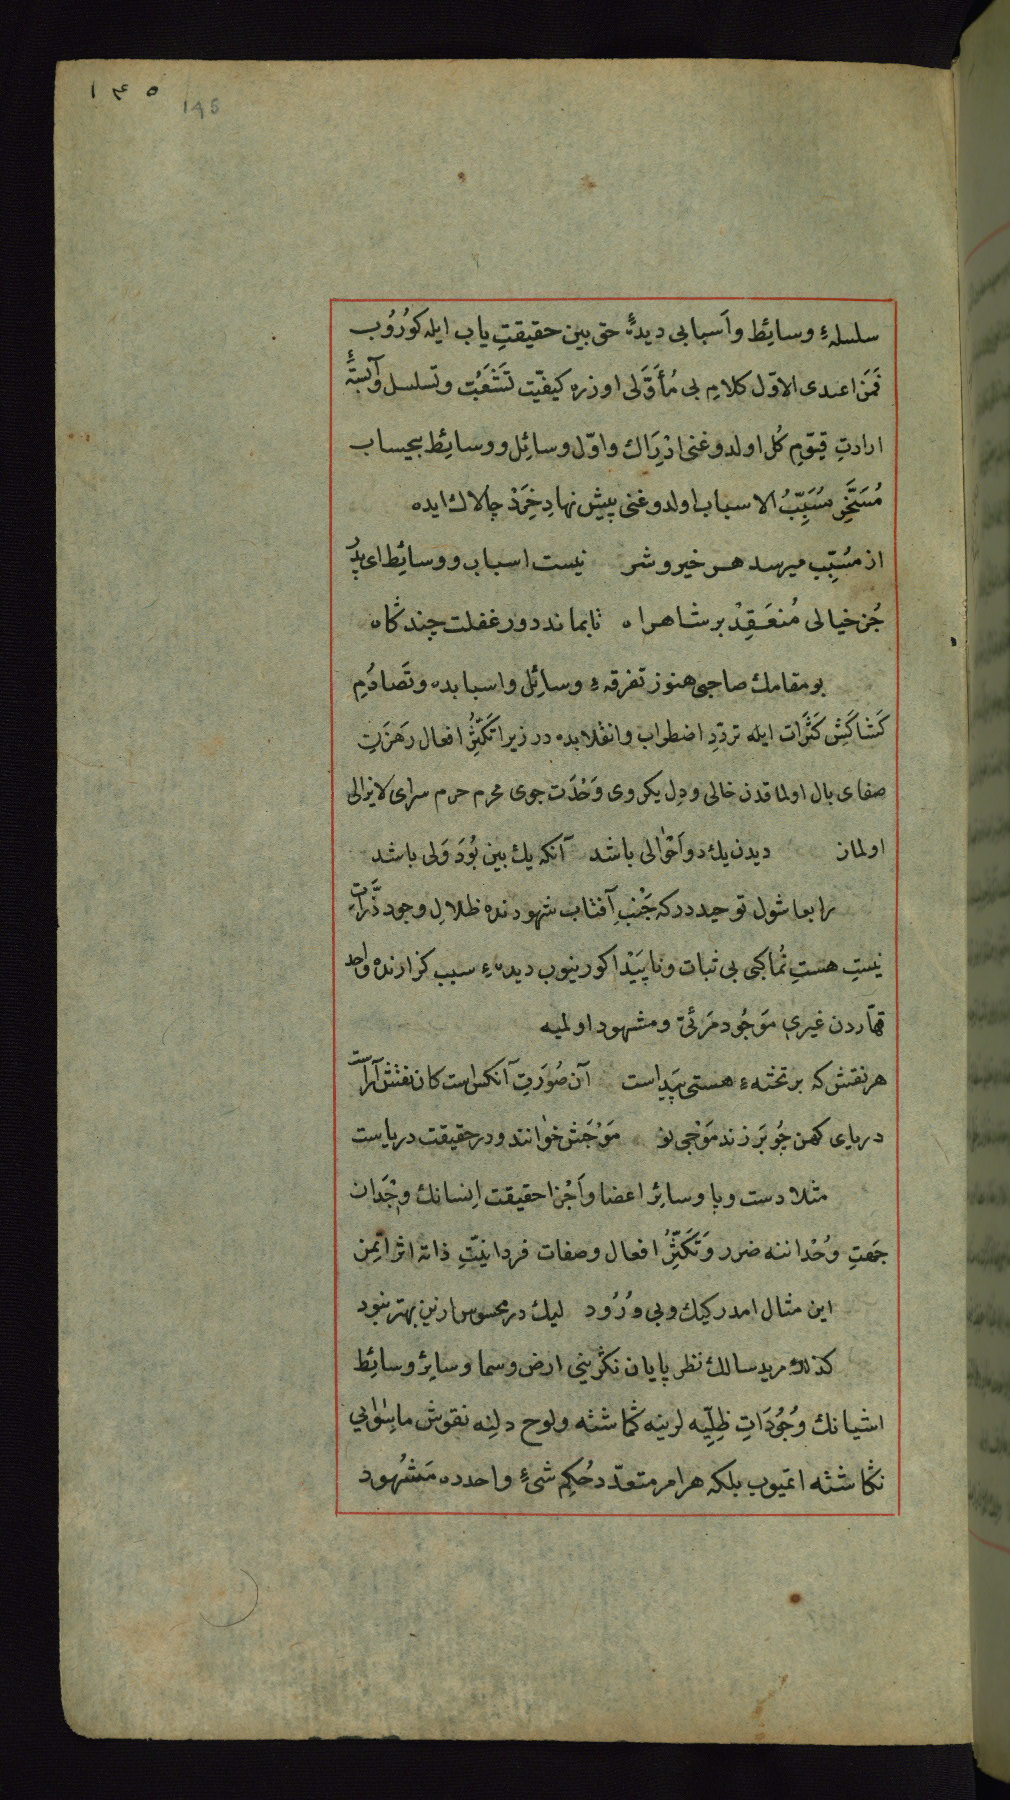 ١٤٥
145
سلسلهٔ وسائط و اسبابی دیدهٔ حق بین حقیقت یاب ایله کوروب
فمن اعدی الاوّل کلام بی مأوّلی اوزره کیفیت تشعّب و تسلسل وابستهٔ
ارادت قیّوم کل اولدوغنی ادراك و اوّل وسائل و وسائط بیحساب
مسخّر مسبّب الاسباب اولدوغنی پیش نهاد خرد چالاك ایده
از مسبّب میرسد هر خیر و شر نیست اسباب و وسائط ای پدر
جز خیالی منعقد بر شاهراه تا بماند دور غفلت چند گاه
بو مقامك صاحبی هنوز تفرقهٔ وسائل و اسبابده و تصادم
کشاکش کثرات ایله تردّد اضطراب و انقلابده در زیرا تکثّر افعال رهزن
صفای بال اولماقدن خالی و دل یکروی وحدت جوی محرم حرم سرای لایزالی
اولماز دیدن یك دو احولی باشد آنکه یك بین بود ولی باشد
رابعا شول توحیددرکه جنب آفتاب شهودنده ظلال وجود ذرّات
نیست هست نماکبی بی ثبات و ناپیدا کورینوب دیدهٔ سبب کزارنده واحد
قهّاردن غیری موجود مرئی و مشهود اولمیه
هر نقش که بر تختهٔ هستی پیداست آن صورت آنکس است کان نقش آراست
دریای کهن چو بر زند موجی نو موجش خوانند و در حقیقت دریاست
مثلا دست و پا و سائر اعضا و اجزا حقیقت انسانك وجدان
جهت وحداننه ضرر و تکثّر افعال و صفات فردانیّت ذاته اثر ایتمز
این مثال امد رکیك و بی ورود لیك در محسوس ازین بهتر نبود
کذلك مرید سالك نظر پایان نکرینی ارض و سما و سائر وسائط
اشیانك وجودات ظلّیه لرینه کماشته و لوح دلنه نقوش ماسوایی
نکاشته اتمیوب بلکه هر امر متعدّد حکم شیء واحدده مشهود